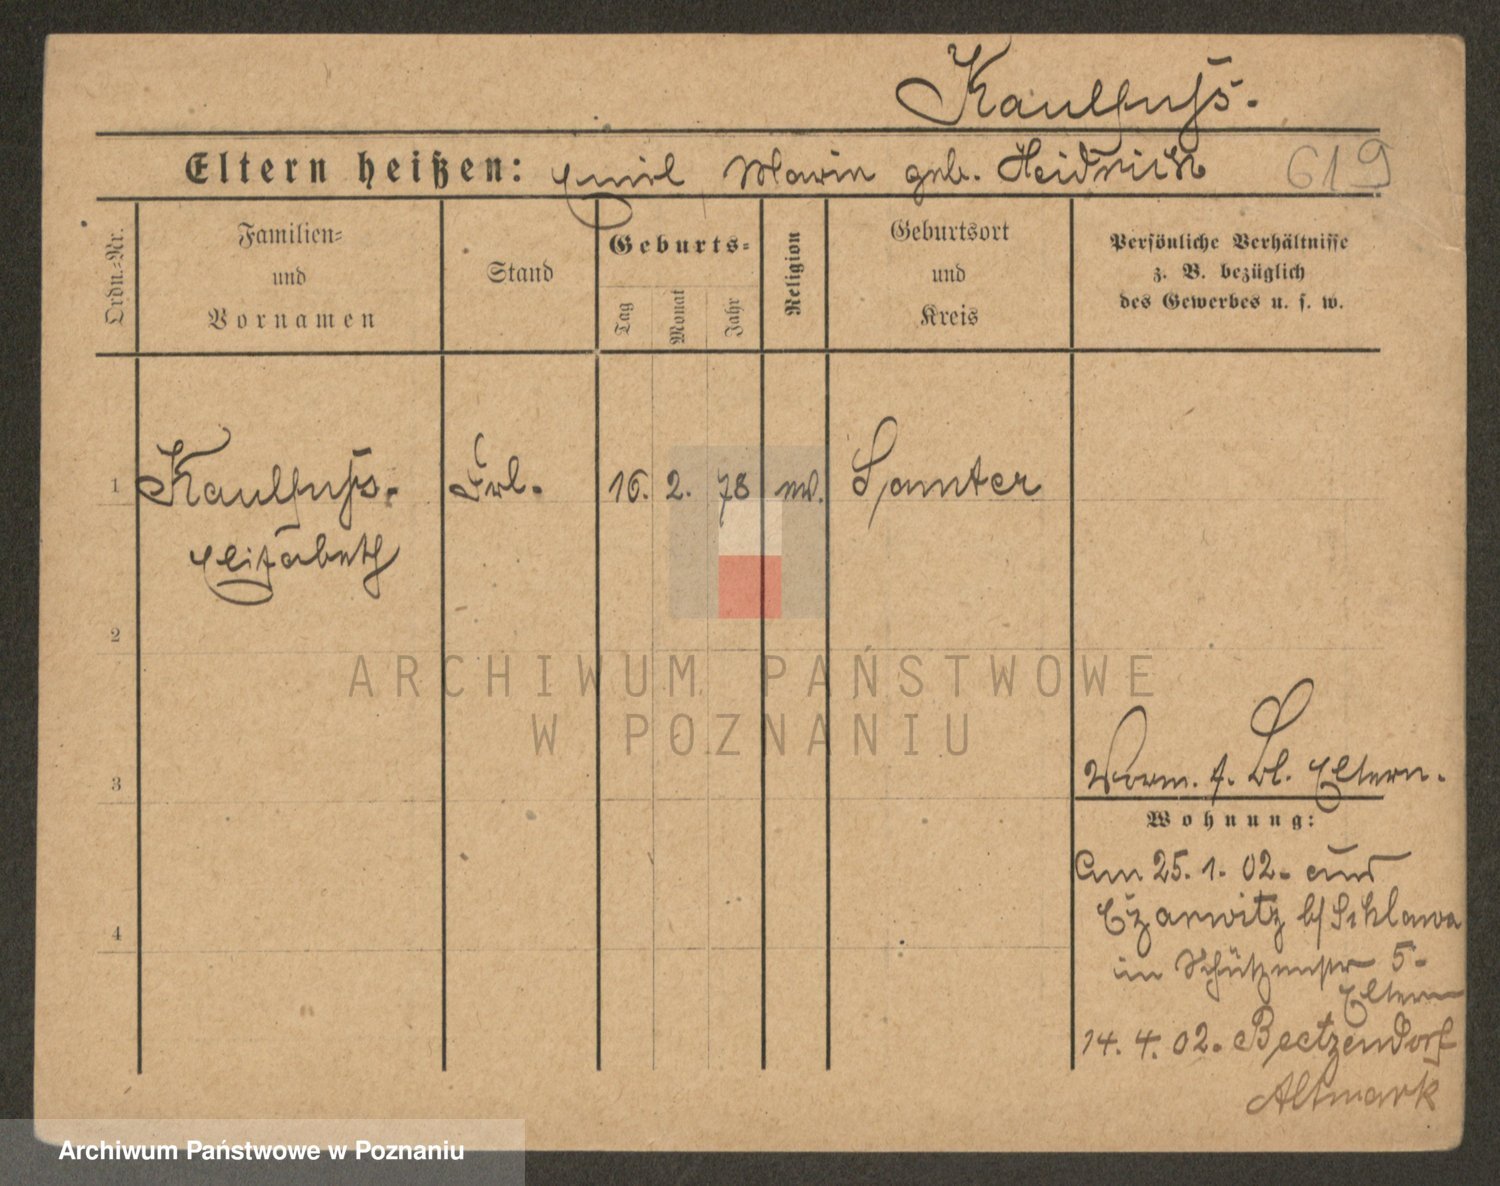 Kaulfuß.
Eltern heißen: Emil Marie geb. Heidrich
619
Ordn.-Nr.
Familien-
und
Vornamen
Stand
Geburts-
Tag
Monat
Jahr
Religion
Geburtsort
und
Kreis
Persönliche Verhältnisse
z. B. bezüglich
des Gewerbes u. s. w.
1 Kaulfuß. Frl. 16. 2. 78 ev. Samter
Elisabeth
2
ARCHIWUM PAŃSTWOWE
W POZNANIU
3
Vorm. f. Bl. Eltern.
Wohnung:
Am 25. 1. 02. aus
Czarwitz b/ Schlawa
in Schützenstr 5.
Eltern
4
14. 4. 02. Beetzendorf
Altmark
Archiwum Państwowe w Poznaniu